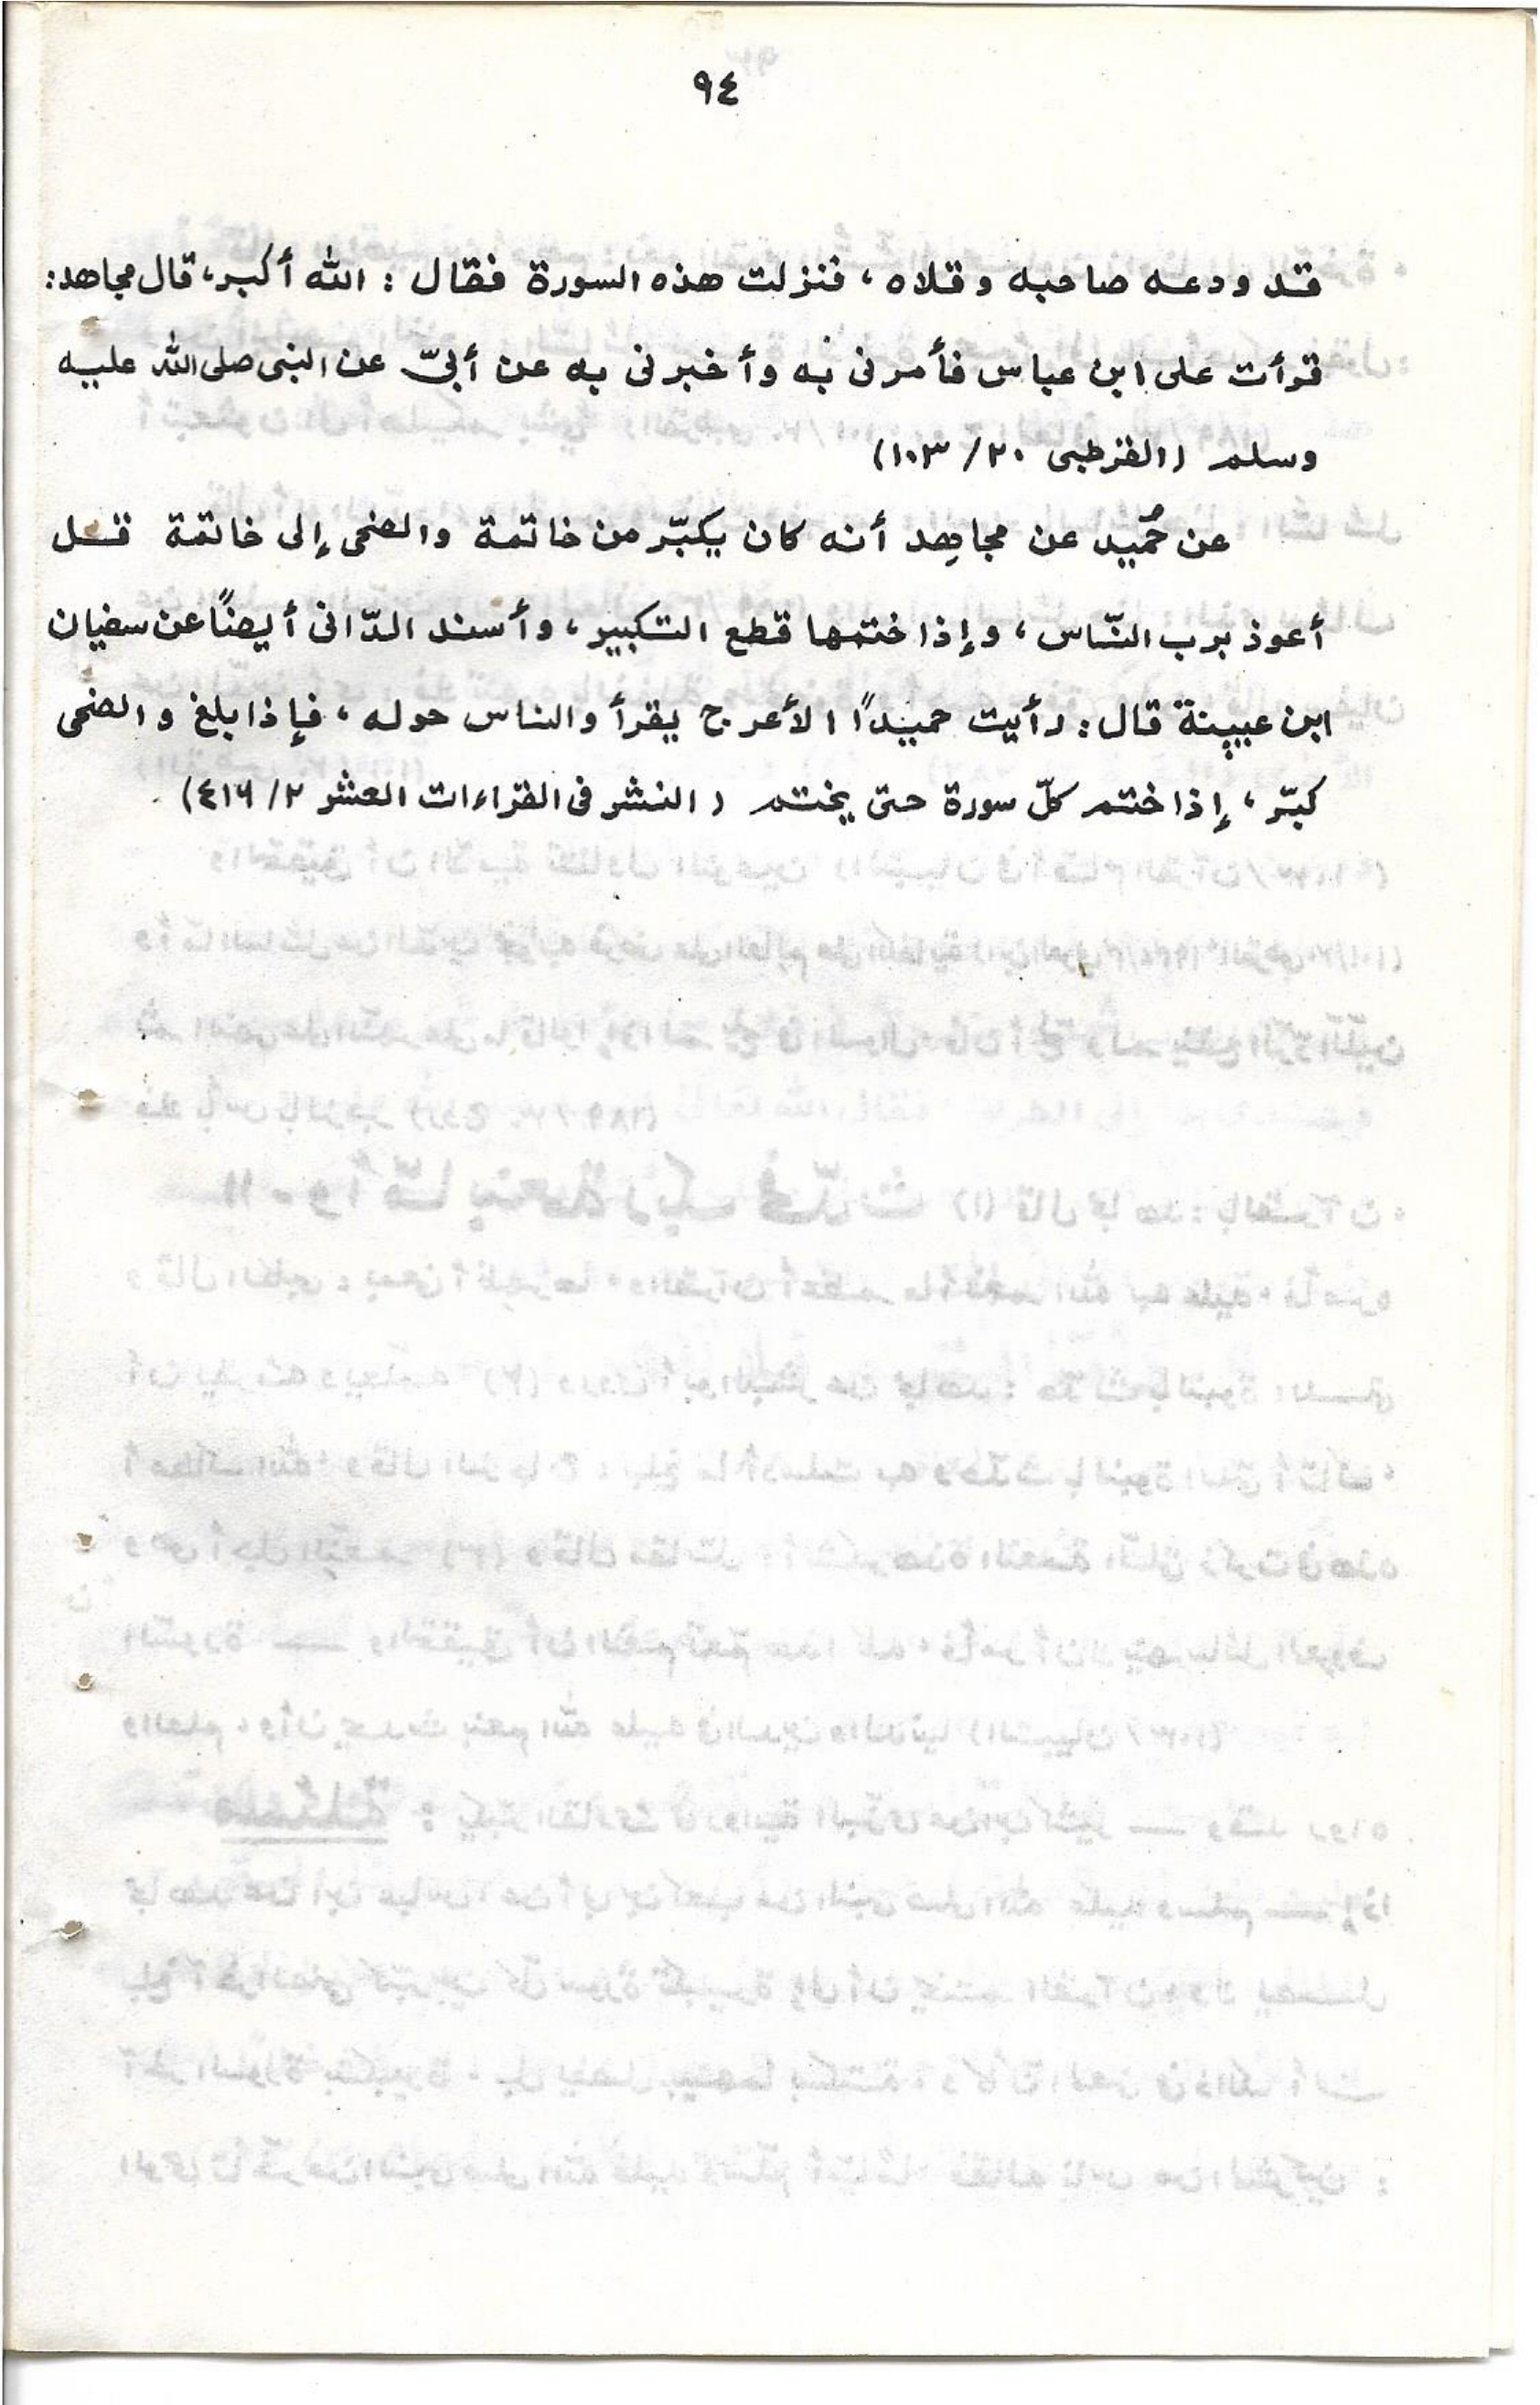 ٩٤
قد ودعه صاحبه وقلاه، فنزلت هذه السورة فقال: الله أكبر، قال مجاهد:
قرأت على ابن عباس فأمرنى به وأخبرنى به عن أبىّ عن النبى صلى الله عليه
وسلم (القرطبى ٢٠/١٠٣)
عن حُميد عن مجاهد أنه كان يكبّر من خاتمة والضحى إلى خاتمة قل
أعوذ برب النّاس، وإذا ختمها قطع التكبير، وأسند الدّانى أيضًا عن سفيان
ابن عيينة قال: رأيت حميدًا الأعرج يقرأ والناس حوله، فإذا بلغ والضحى
كبّر، إذا ختم كلّ سورة حتى يختم (النشر فى القراءات العشر ٢/٤١٦)